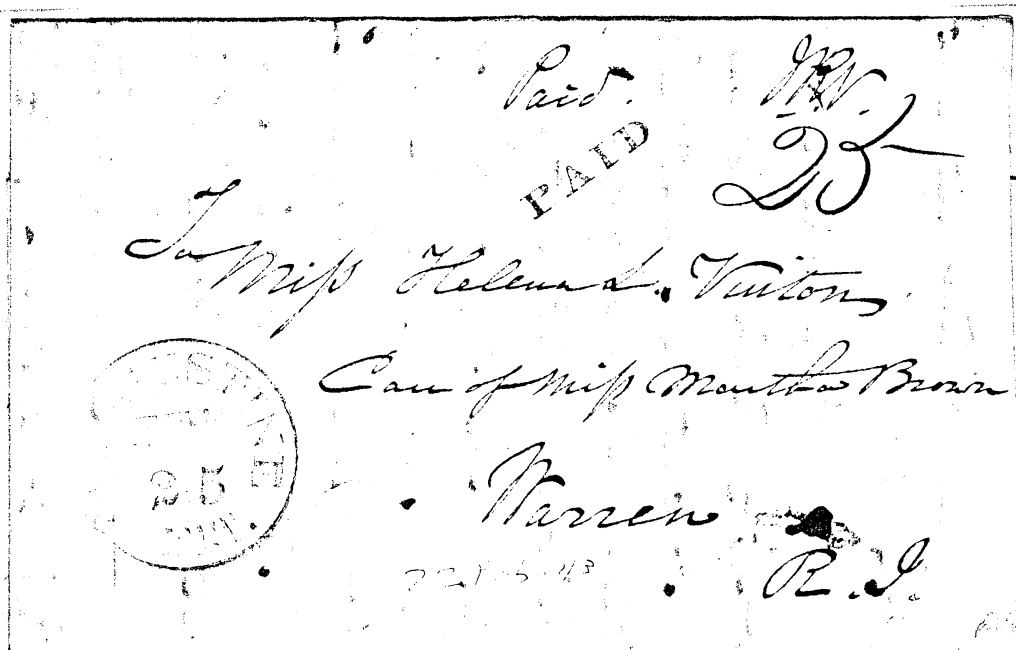 Paid.
25
PAID
To
Miss Helena L. Vinton
Care of Miss Martha Brown
25
Warren
R. I.